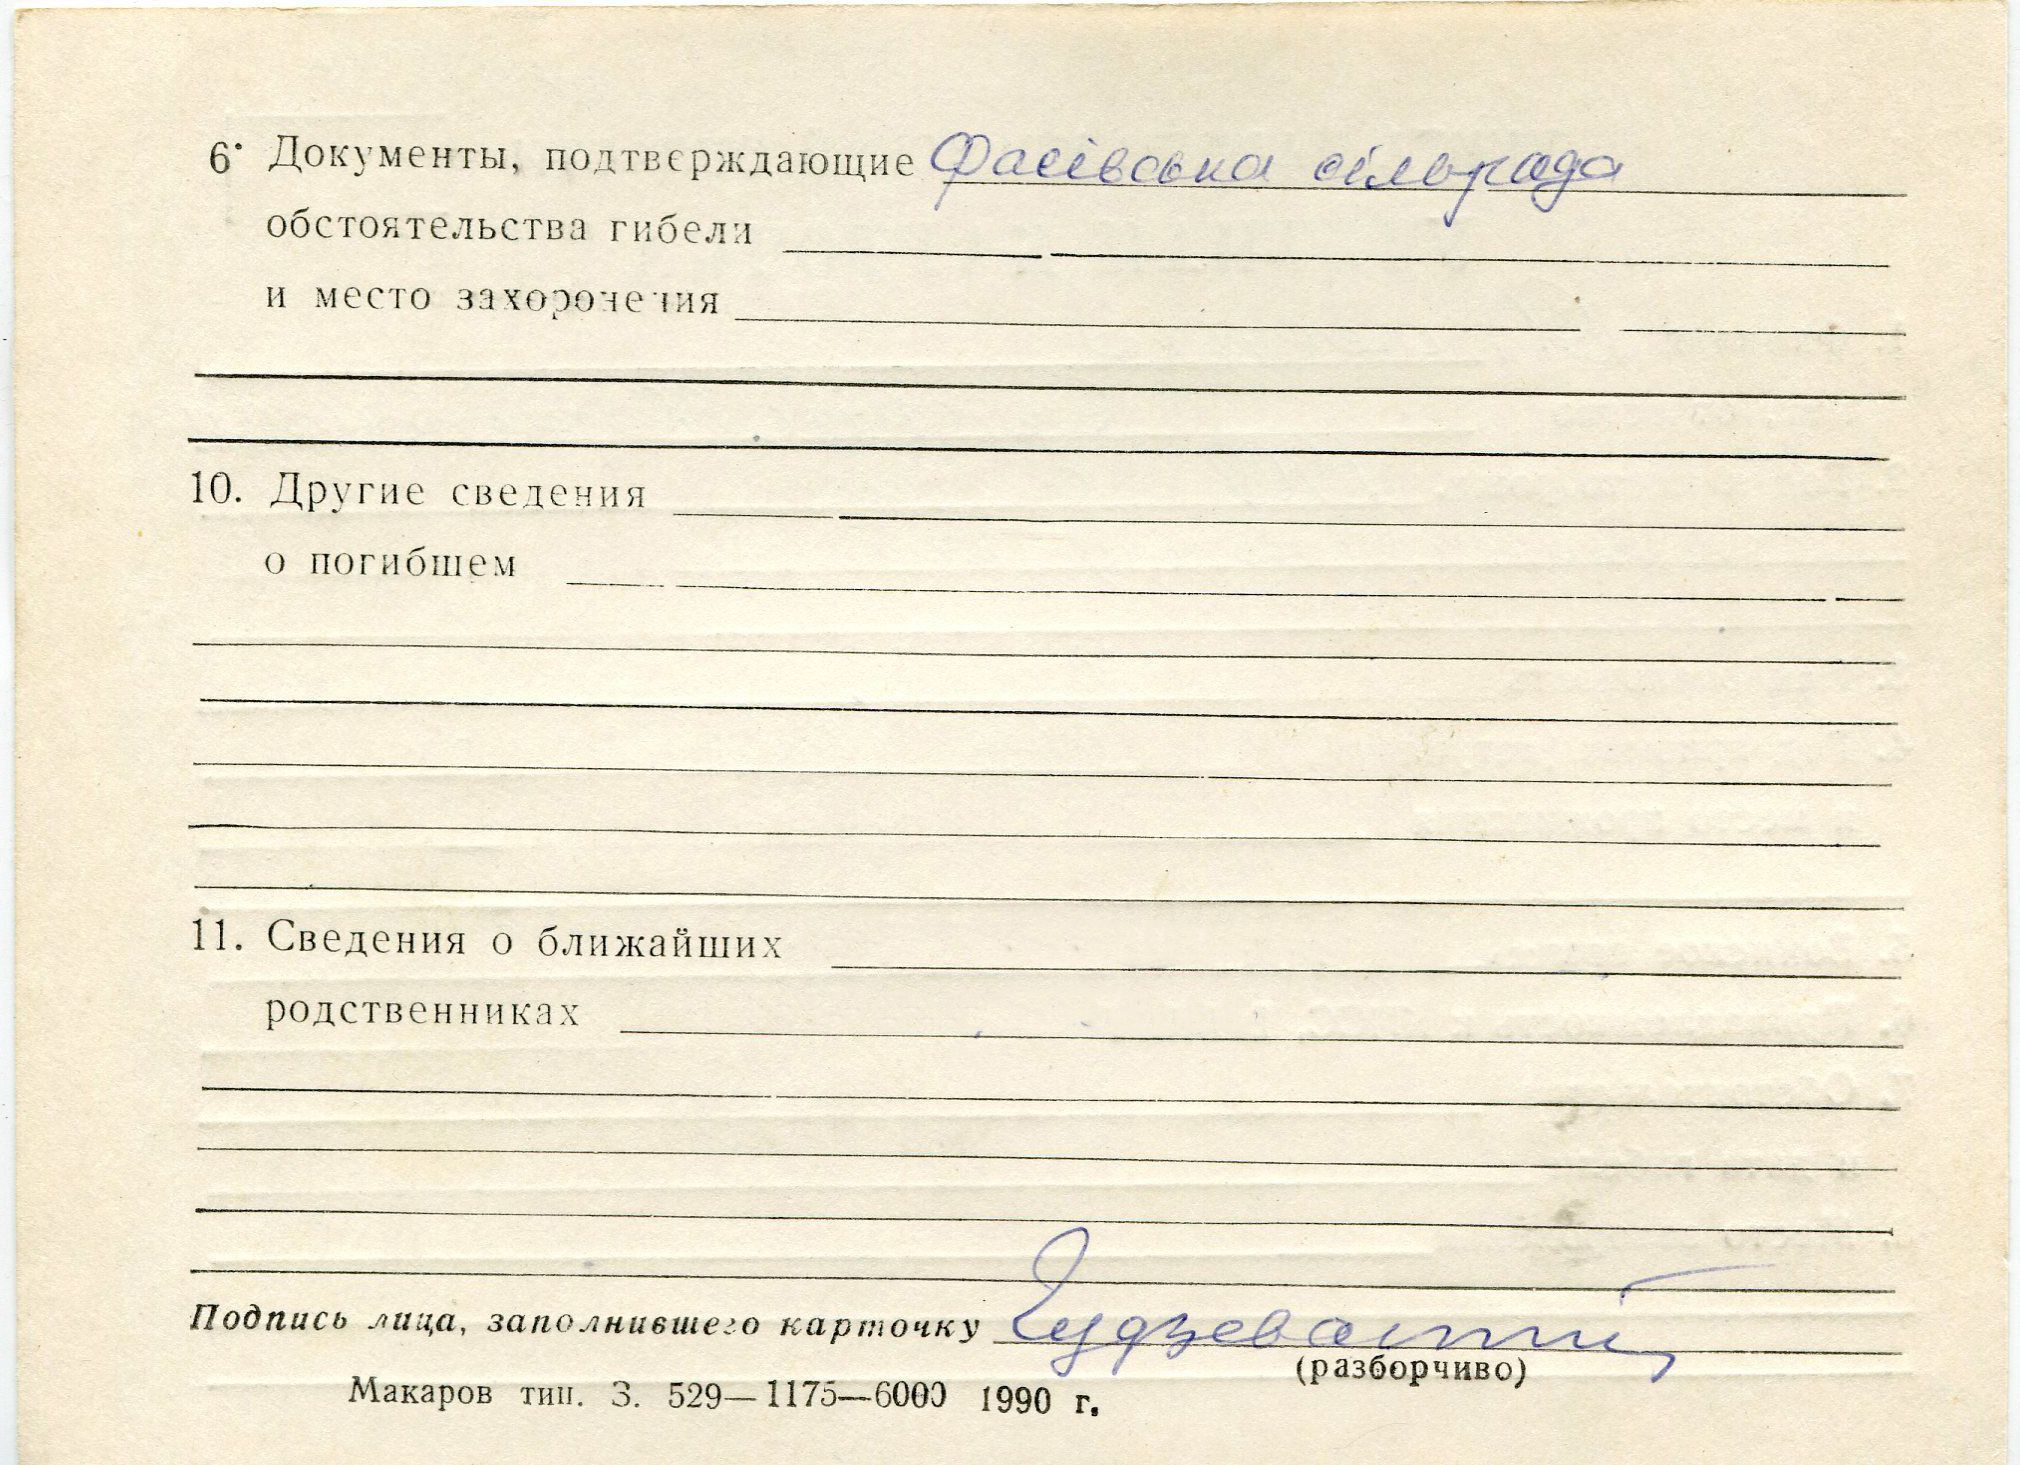 6. Документы, подтверждающие Фасівська сільрада
обстоятельства гибели
и место захоронения
10. Другие сведения
о погибшем
11. Сведения о ближайших
родственниках
Подпись лица, заполнившего карточку
(разборчиво)
Макаров тип. З. 529—1175—6000 1990 г.